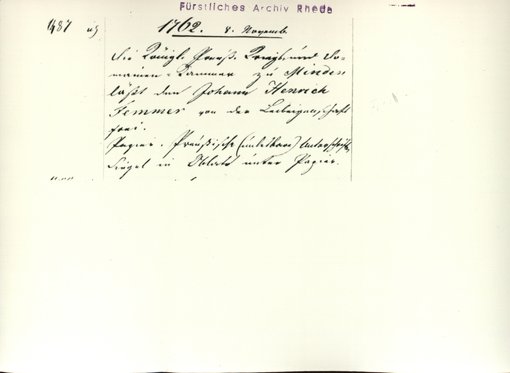 Fürstliches Archiv Rheda
1487
1762. 8. Novemb.
Die Königl. Preuß. Kriegs und Do-
mainen-Kammer zu Minden
läßt den Johann Henrich
Temmer von der Leibeigenschaft
frei.
Papier. Preußische (unlesbare) Unterschrift,
Siegel in Oblate unter Papier.